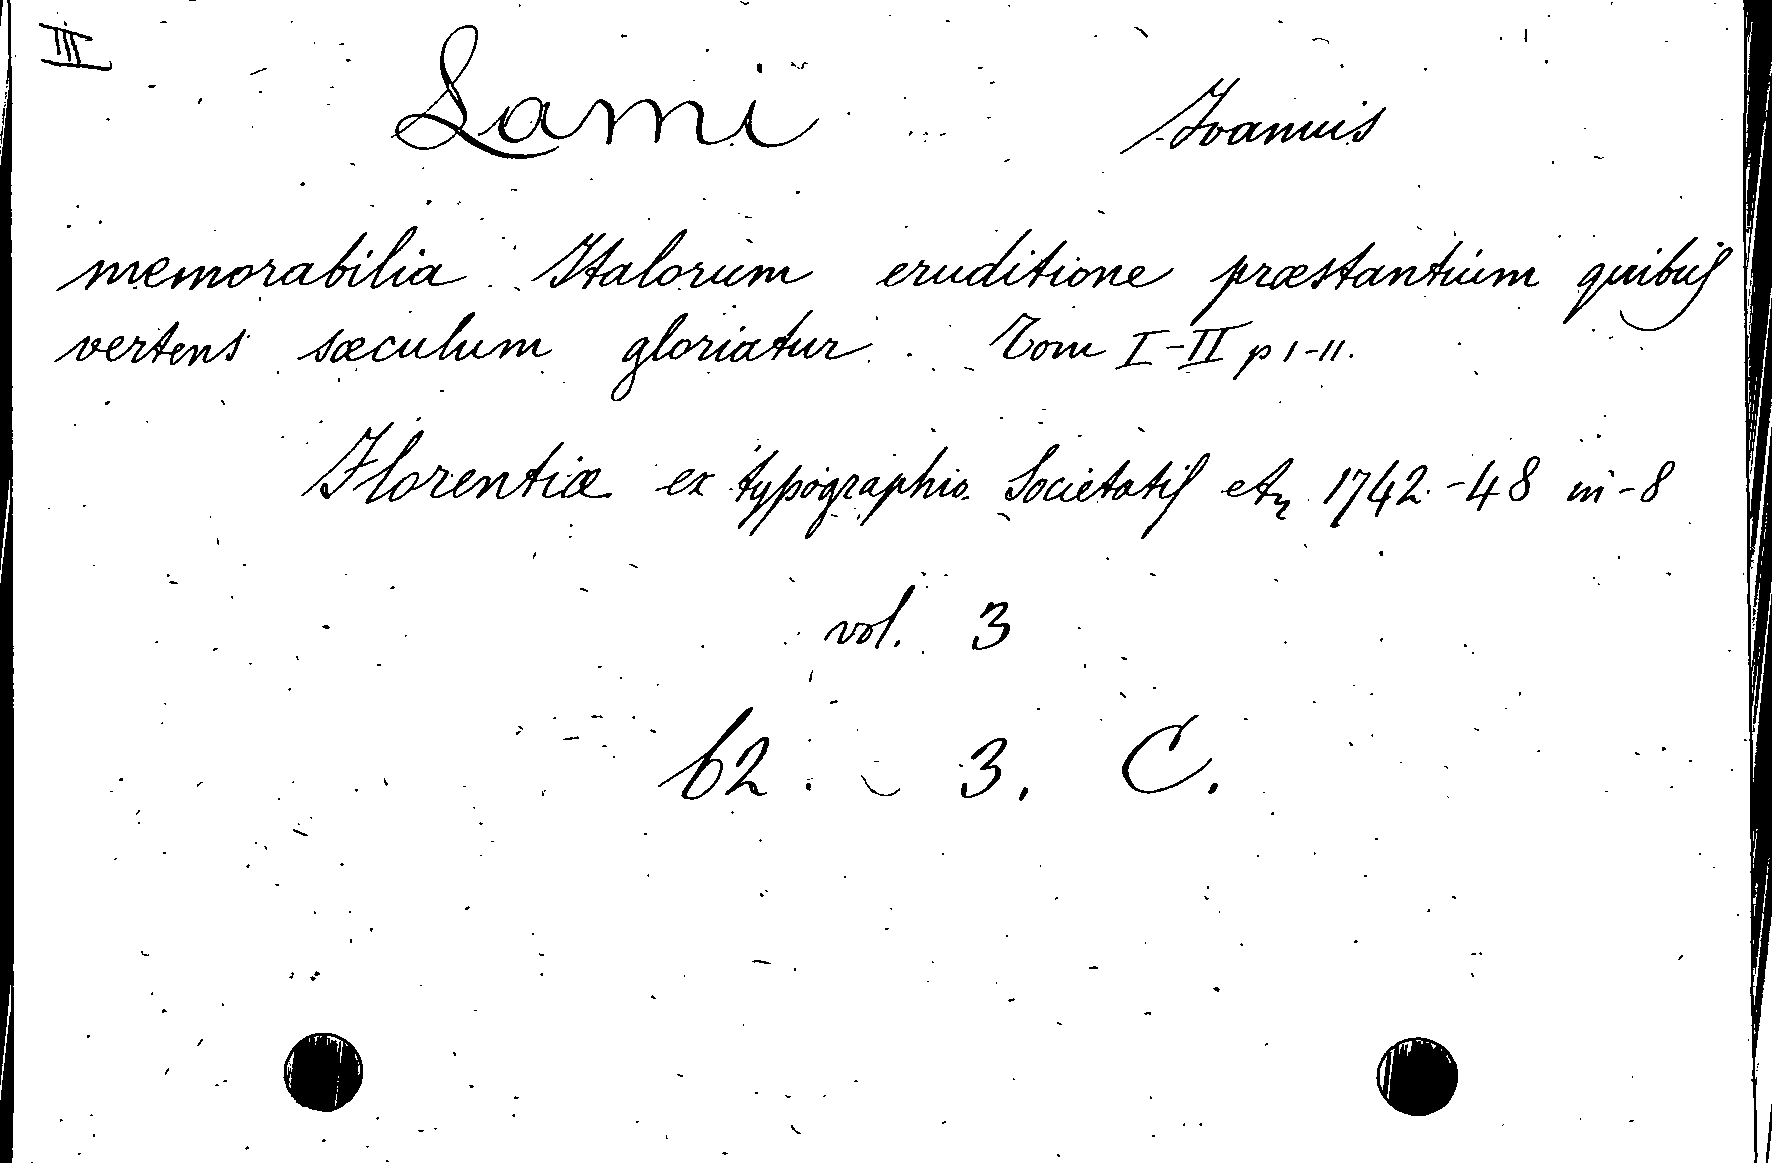 III
Lami Ioannis
memorabilia Italorum eruditione præstantium quibus
vertens sæculum gloriatur. Tom I-II p I-II.
Florentiæ ex typographio Societatis etc 1742-48 in-8
vol. 3
62. 3. C.